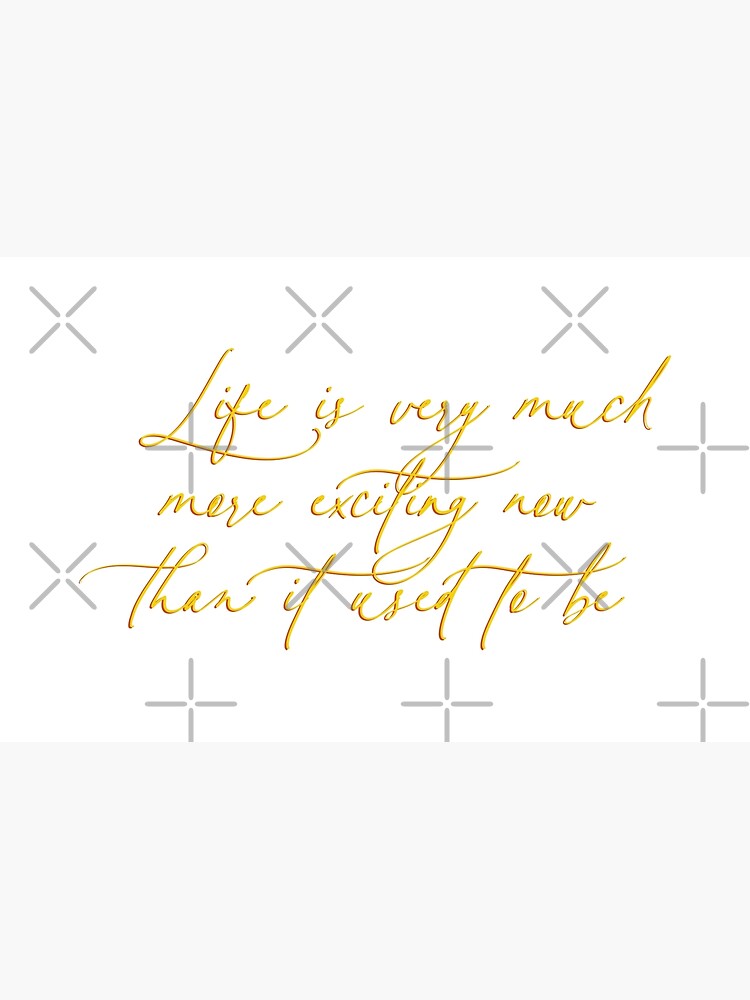 Life is very much
more exciting now
than it used to be